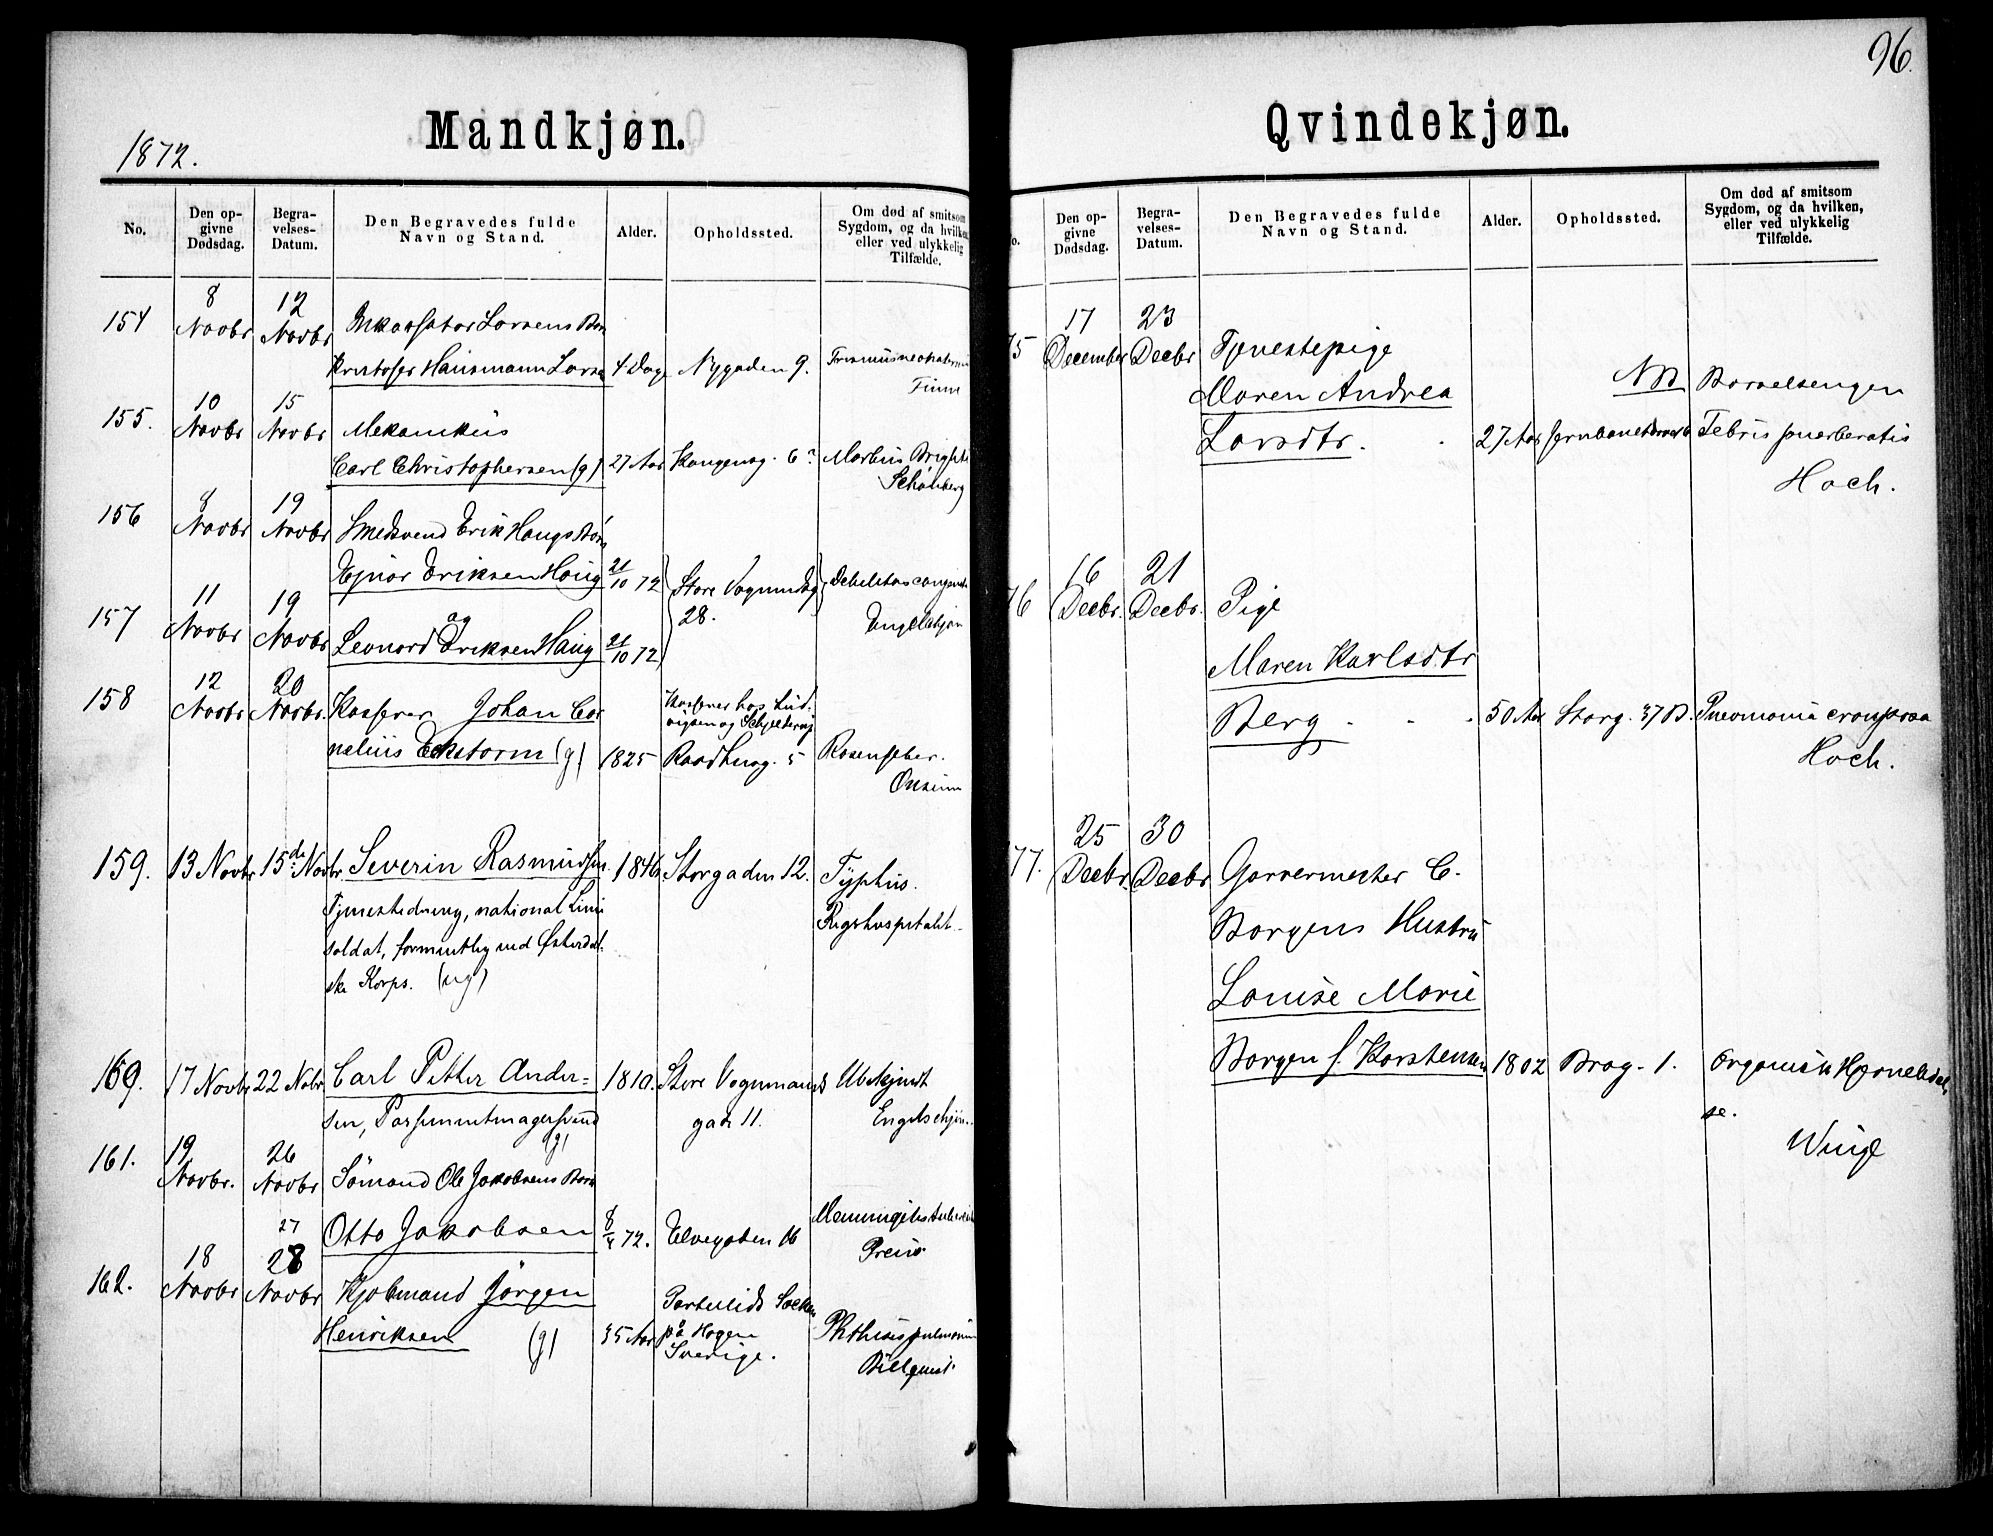 96.
1872.
Mandkjøn.
No.
Den opgivne Dødsdag.
Begravelses-Datum.
Den Begravedes fulde Navn og Stand.
Alder.
Opholdssted.
Om død af smitsom Sygdom, og da hvilken, eller ved ulykkelig Tilfælde.
154
8 Novbr
12 Novbr
Larsens Barn
Hansmann Larsen
4 Dage
Nygaden 9.
155.
10 Novbr
15 Novbr
Mekanikus
Carl Christophersen (g)
27 Aar
Kongensg. 6
Morbus Brightii
Schønberg
156
8 Novbr
19 Novbr
Smedsvend Erik Haugs Børn
Ejnar Eriksen Haug
21/10 72
Store Vognmdsg
28.
Engelschjøn
157
11 Novbr
19 Novbr
og
Leonard Eriksen Haug
21/10 72
158
12 Novbr
20 Novbr.
Kasserer Johan Cor
nelius Eckstorm (g)
1825
Kasserer hos Lud
vigsen og Schjelderup
Raadhusg. 5
Rosenfeber.
Onsum
159.
13 Novbr
15de Novbr.
Severin Rasmussen
Tjenestedreng, national Linie
soldat, formentlig ved Østerdal
ske Korps. (ug)
1846
Storgaden 12.
Typhus.
Rigshospitalet
160.
17 Novbr
22 Nobr
Carl Petter Ander=
sen,
(g)
1810.
Store Vognmands
gade 11.
Ubekjendt
Engelschjøn.
161.
19 Novbr.
26 Novbr
Sömand Ole Jakobsens Barn
Otto Jakobsen
8/4 72.
Elvegaden 16
Preus
162.
18 Novbr
27
28 Novbr
Kjøbmand Jörgen
Henriksen (g)
35 Aar
Socken
på Hogen
Sverige.
Phthisis pulmonum
Billquist
Qvindekjøn.
No.
Den opgivne Dødsdag.
Begravelses-Datum.
Den Begravedes fulde Navn og Stand.
Alder.
Opholdssted.
Om død af smitsom Sygdom, og da hvilken, eller ved ulykkelig Tilfælde.
75
17 December
23 Decbr
Tjenestepige
Maren Andrea
Larsdtr.
27 Aar
NB Barselsengen
Febris puerberalis
Hoch.
76
16 Decbr.
21 Decbr.
Pige
Maren Karlsdtr
Berg
50 Aar
Storg. 37 B.
Pneomonia crouposa
Hoch.
77.
25 Decbr.
30 Decbr
Garvermester C.
Borgens Hustru
Louise Marie
Borgen f. Karstensen
1802
Brog. 1.
Organisk Hjertelidel
se.
Winge